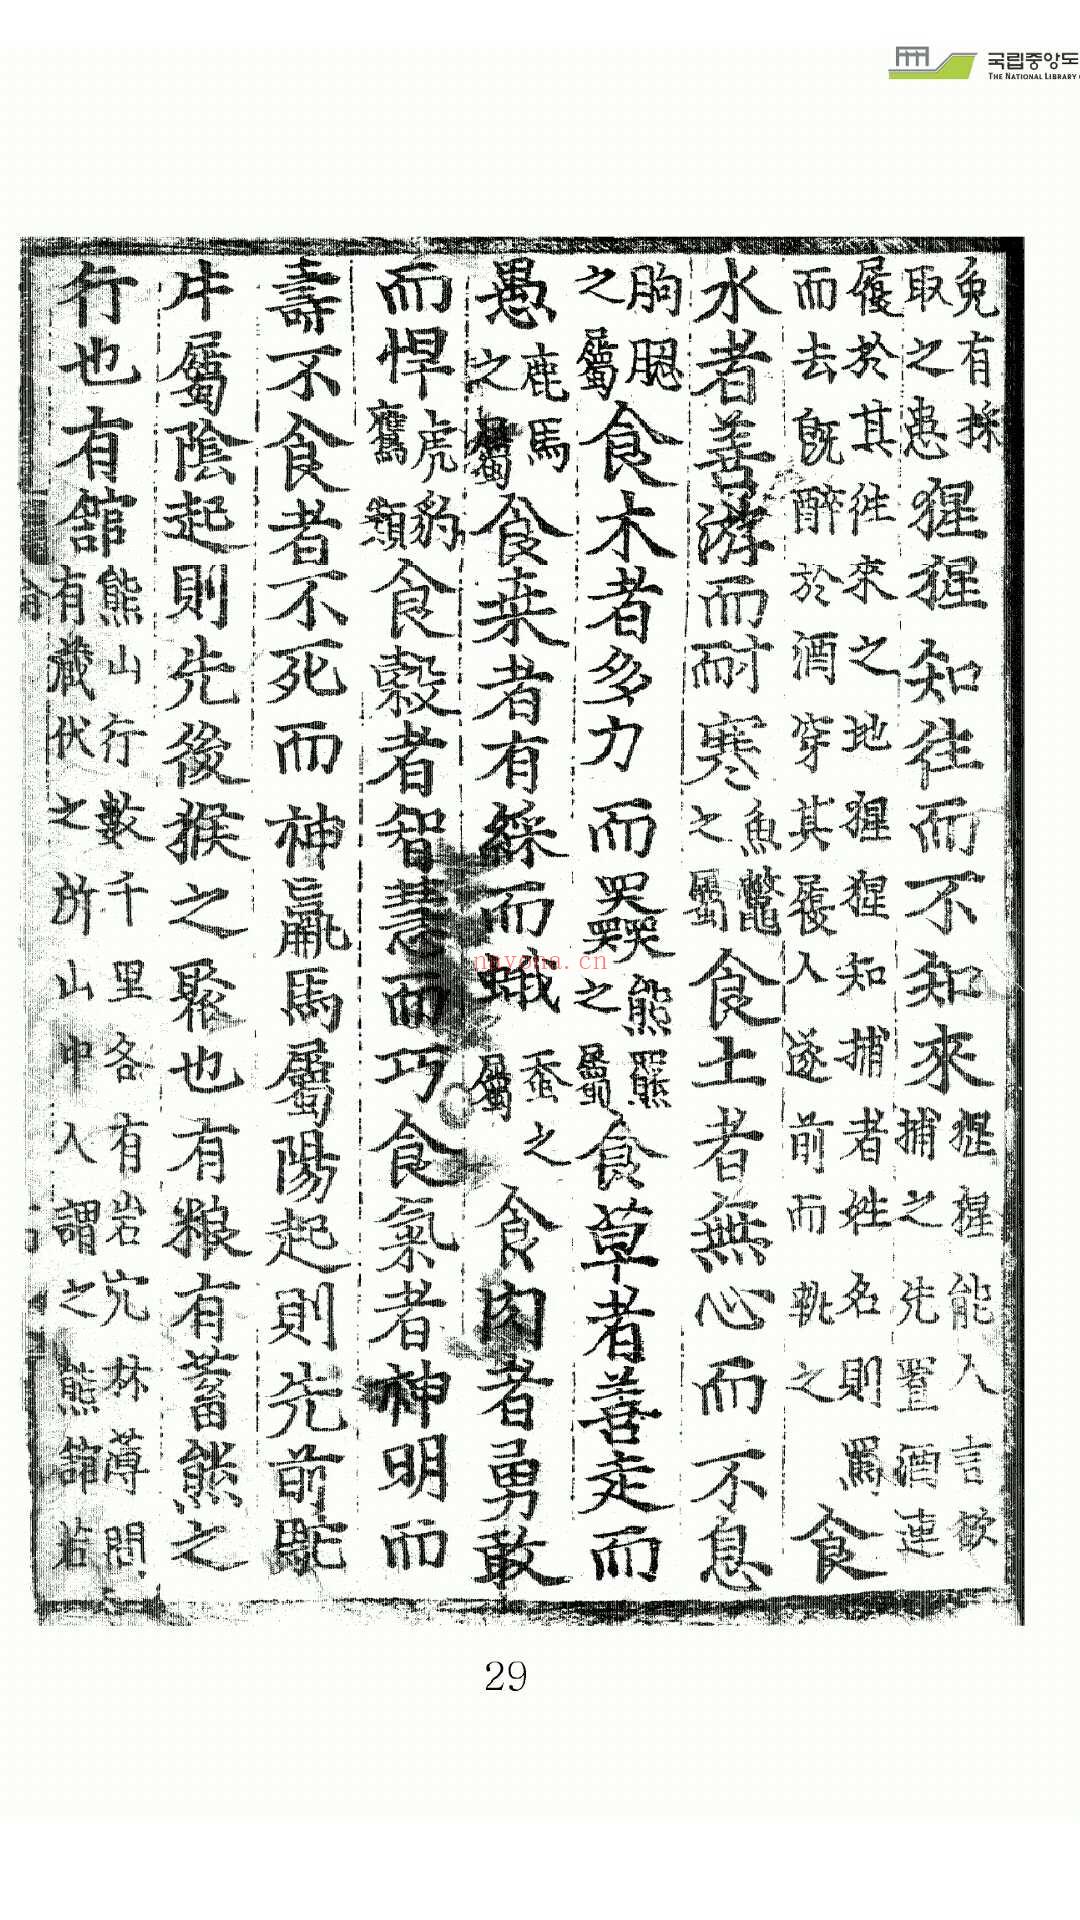 국립중앙도
THE NATIONAL LIBRARY
免有採取之患猩猩知往而不知來猩猩能人言飲捕之先置酒連
履於其徃來之地猩猩知捕者姓名則罵而去旣醉於酒穿其履人遂前而執之食
水者善游而耐寒魚鼈之屬食土者無心而不息
朐䏰之屬食木者多力而𡚤熊羆之屬食草者善走而
愚鹿馬之屬食桒者有絲而蛾蚕之屬食肉者勇敢
而悍虎豹鷹類食糓者智慧而巧食氣者神明而
壽不食者不死而神驘馬屬陽起則先前駝
牛屬陰起則先後猴之聚也有粮有蓄熊之
行也有舘熊山行數千里各有岩穴林薄間有藏伏之所山中人謂之熊舘若
nayona.cn
29